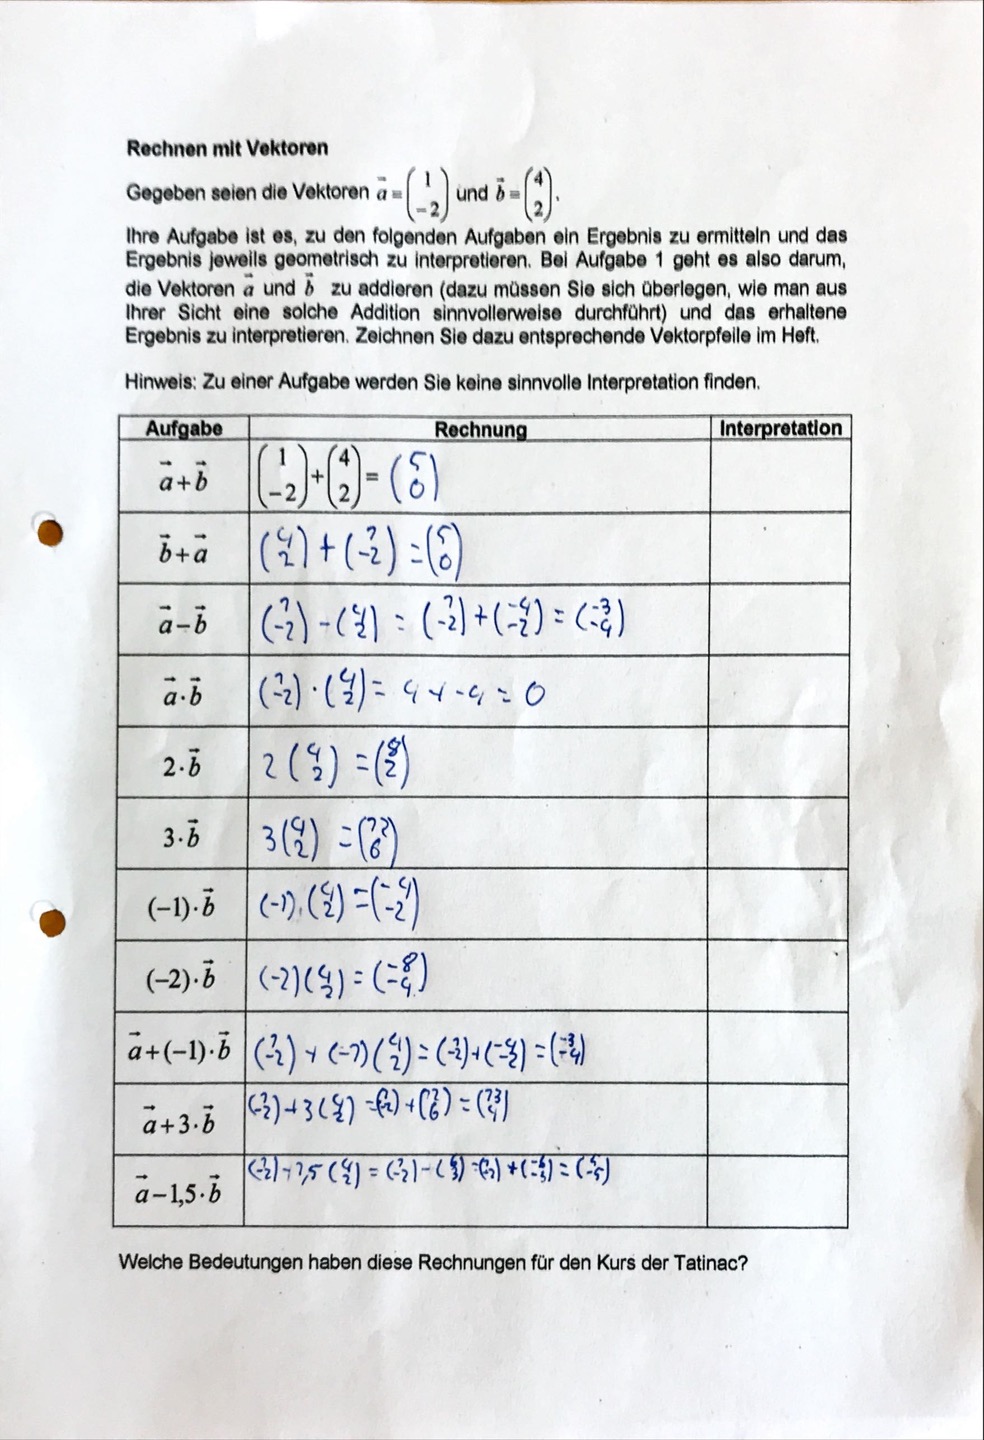 Rechnen mit Vektoren
Gegeben seien die Vektoren a⃗ = (1 / −2) und b⃗ = (4 / 2).
Ihre Aufgabe ist es, zu den folgenden Aufgaben ein Ergebnis zu ermitteln und das
Ergebnis jeweils geometrisch zu interpretieren. Bei Aufgabe 1 geht es also darum,
die Vektoren a⃗ und b⃗ zu addieren (dazu müssen Sie sich überlegen, wie man aus
Ihrer Sicht eine solche Addition sinnvollerweise durchführt) und das erhaltene
Ergebnis zu interpretieren. Zeichnen Sie dazu entsprechende Vektorpfeile im Heft.
Hinweis: Zu einer Aufgabe werden Sie keine sinnvolle Interpretation finden.
Aufgabe Rechnung Interpretation
a⃗+b⃗ (1 / −2) + (4 / 2) = (5 / 0)
b⃗+a⃗ (4 / 2) + (1 / -2) = (5 / 0)
a⃗−b⃗ (1 / -2) - (4 / 2) = (1 / -2) + (-4 / -2) = (-3 / -4)
a⃗·b⃗ (1 / -2) · (4 / 2) = 4 + -4 = 0
2·b⃗ 2 (4 / 2) = (8 / 2)
3·b⃗ 3 (4 / 2) = (12 / 6)
(−1)·b⃗ (-1) · (4 / 2) = (-4 / -2)
(−2)·b⃗ (-2) (4 / 2) = (-8 / -4)
a⃗+(−1)·b⃗ (1 / -2) + (-1) (4 / 2) = (1 / -2) + (-4 / -2) = (-3 / -4)
a⃗+3·b⃗ (1 / -2) + 3 (4 / 2) = (1 / -2) + (12 / 6) = (13 / 4)
a⃗−1,5·b⃗ (1 / -2) - 1,5 (4 / 2) = (1 / -2) - (6 / 3) = (1 / -2) + (-6 / -3) = (-5 / -5)
Welche Bedeutungen haben diese Rechnungen für den Kurs der Tatinac?